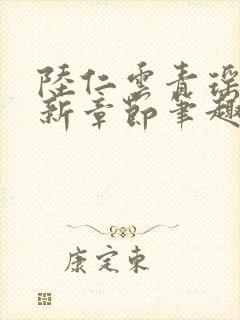 陸仁雲青瑤
新章節筆趣
康定東